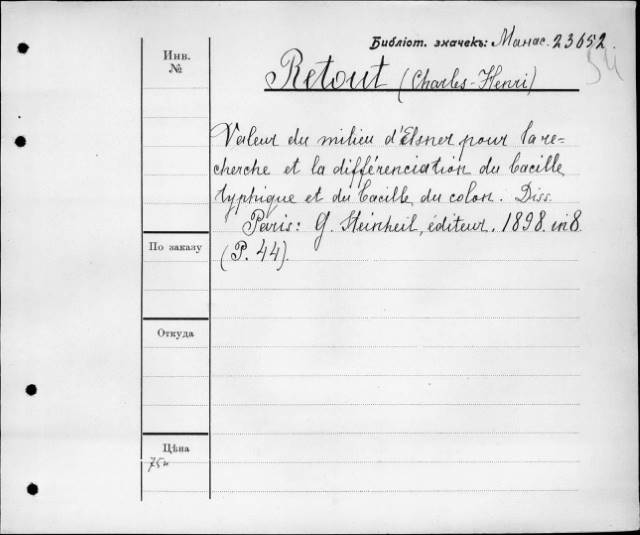 Библіот. значекъ: Манас. 23652.
54
Инв.
№
Retout (Charles-Henri)
Valeur du milieu d'Elsner pour la re=
cherche et la différenciation du bacille
typhique et du bacille du colon. Diss.
Paris: G. Steinheil, éditeur. 1898. in 8.
(P. 44).
По заказу
Откуда
Цѣна
75к